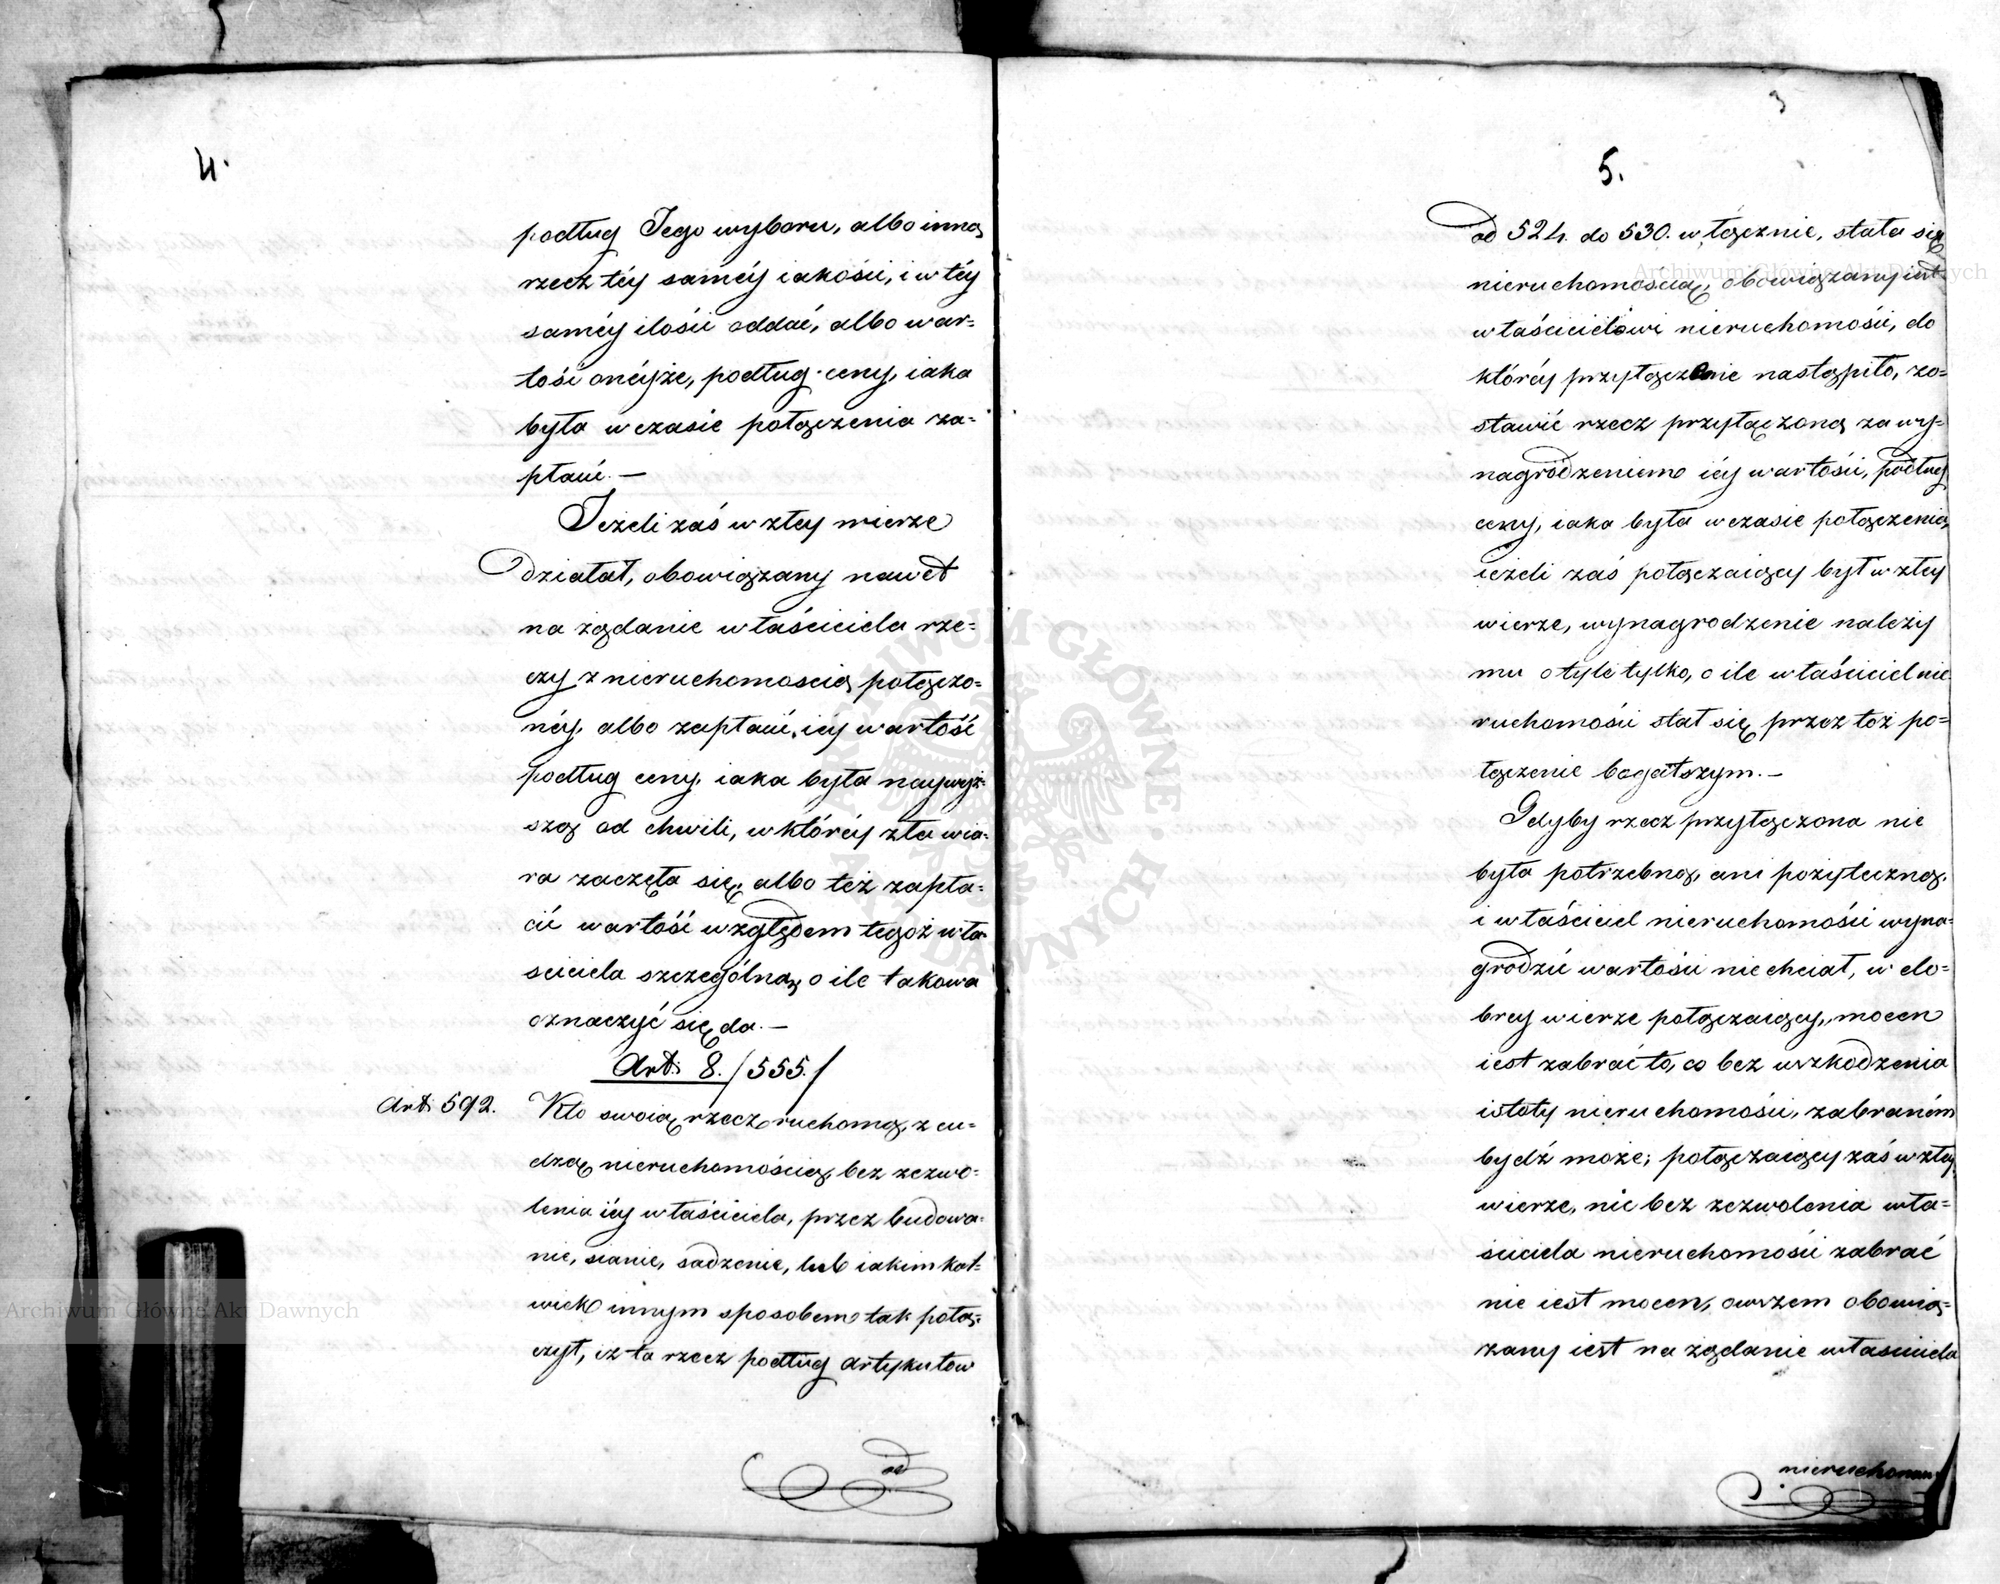 4.
podług Jego wyboru, albo inną
rzecz téy saméy iakości, i w téy
saméy ilości oddać, albo war=
tość onéyże, podług ceny, iaka
była w czasie połączenia za=
płacić. —
Jeżeli zaś w złey wierze
działał, obowiązany nawet
na żądanie właściciela rze=
czy z nieruchomością połączo=
néy, albo zapłacić iéy wartość
podług ceny, iaka była naywyż=
szą od chwili, w któréy zła wia=
ra zaczęła się, albo też zapła=
cić wartość względem tegoż wła=
ściciela szczególną, o ile takowa
oznaczyć się da. —
Art: 8. /555./
Art: 592.
Kto swoią rzecz ruchomą, z cu=
dzą nieruchomością, bez zezwo=
lenia iéy właściciela, przez budowa=
nie, sianie, sadzenie, lub iakimkol=
wiek innym sposobem tak połą=
czył, iż ta rzecz podług artykułów
od
3
5.
od 524. do 530. włącznie, stała się
nieruchomością, obowiązany iest
właścicielowi nieruchomości, do
któréy przyłączenie nastąpiło, zo=
stawić rzecz przyłączoną za wy=
nagrodzeniem iéy wartości, podług
ceny, iaka była w czasie połączenia,
ieżeli zaś połączaiący był w złey
wierze, wynagrodzenie należy
mu o tyle tylko, o ile właściciel nie
ruchomości stał się przez toż po=
łączenie bogatszym. —
Gdyby rzecz przyłączona nie
była potrzebną, ani pożyteczną,
i właściciel nieruchomości wyna=
grodzić wartości nie chciał, w do=
brey wierze połączaiący, mocen
iest zabrać to, co bez uszkodzenia
istoty nieruchomości, zabraném
bydź może; połączaiący zaś w złey
wierze, nic bez zezwolenia wła=
ściciela nieruchomości zabrać
nie iest mocen, owszem obowią=
zany iest na żądanie właściciela
nieruchomo
Archiwum Główne Akt Dawnych
Archiwum Główne Akt Dawnych
ARCHIWUM GŁÓWNE AKT DAWNYCH